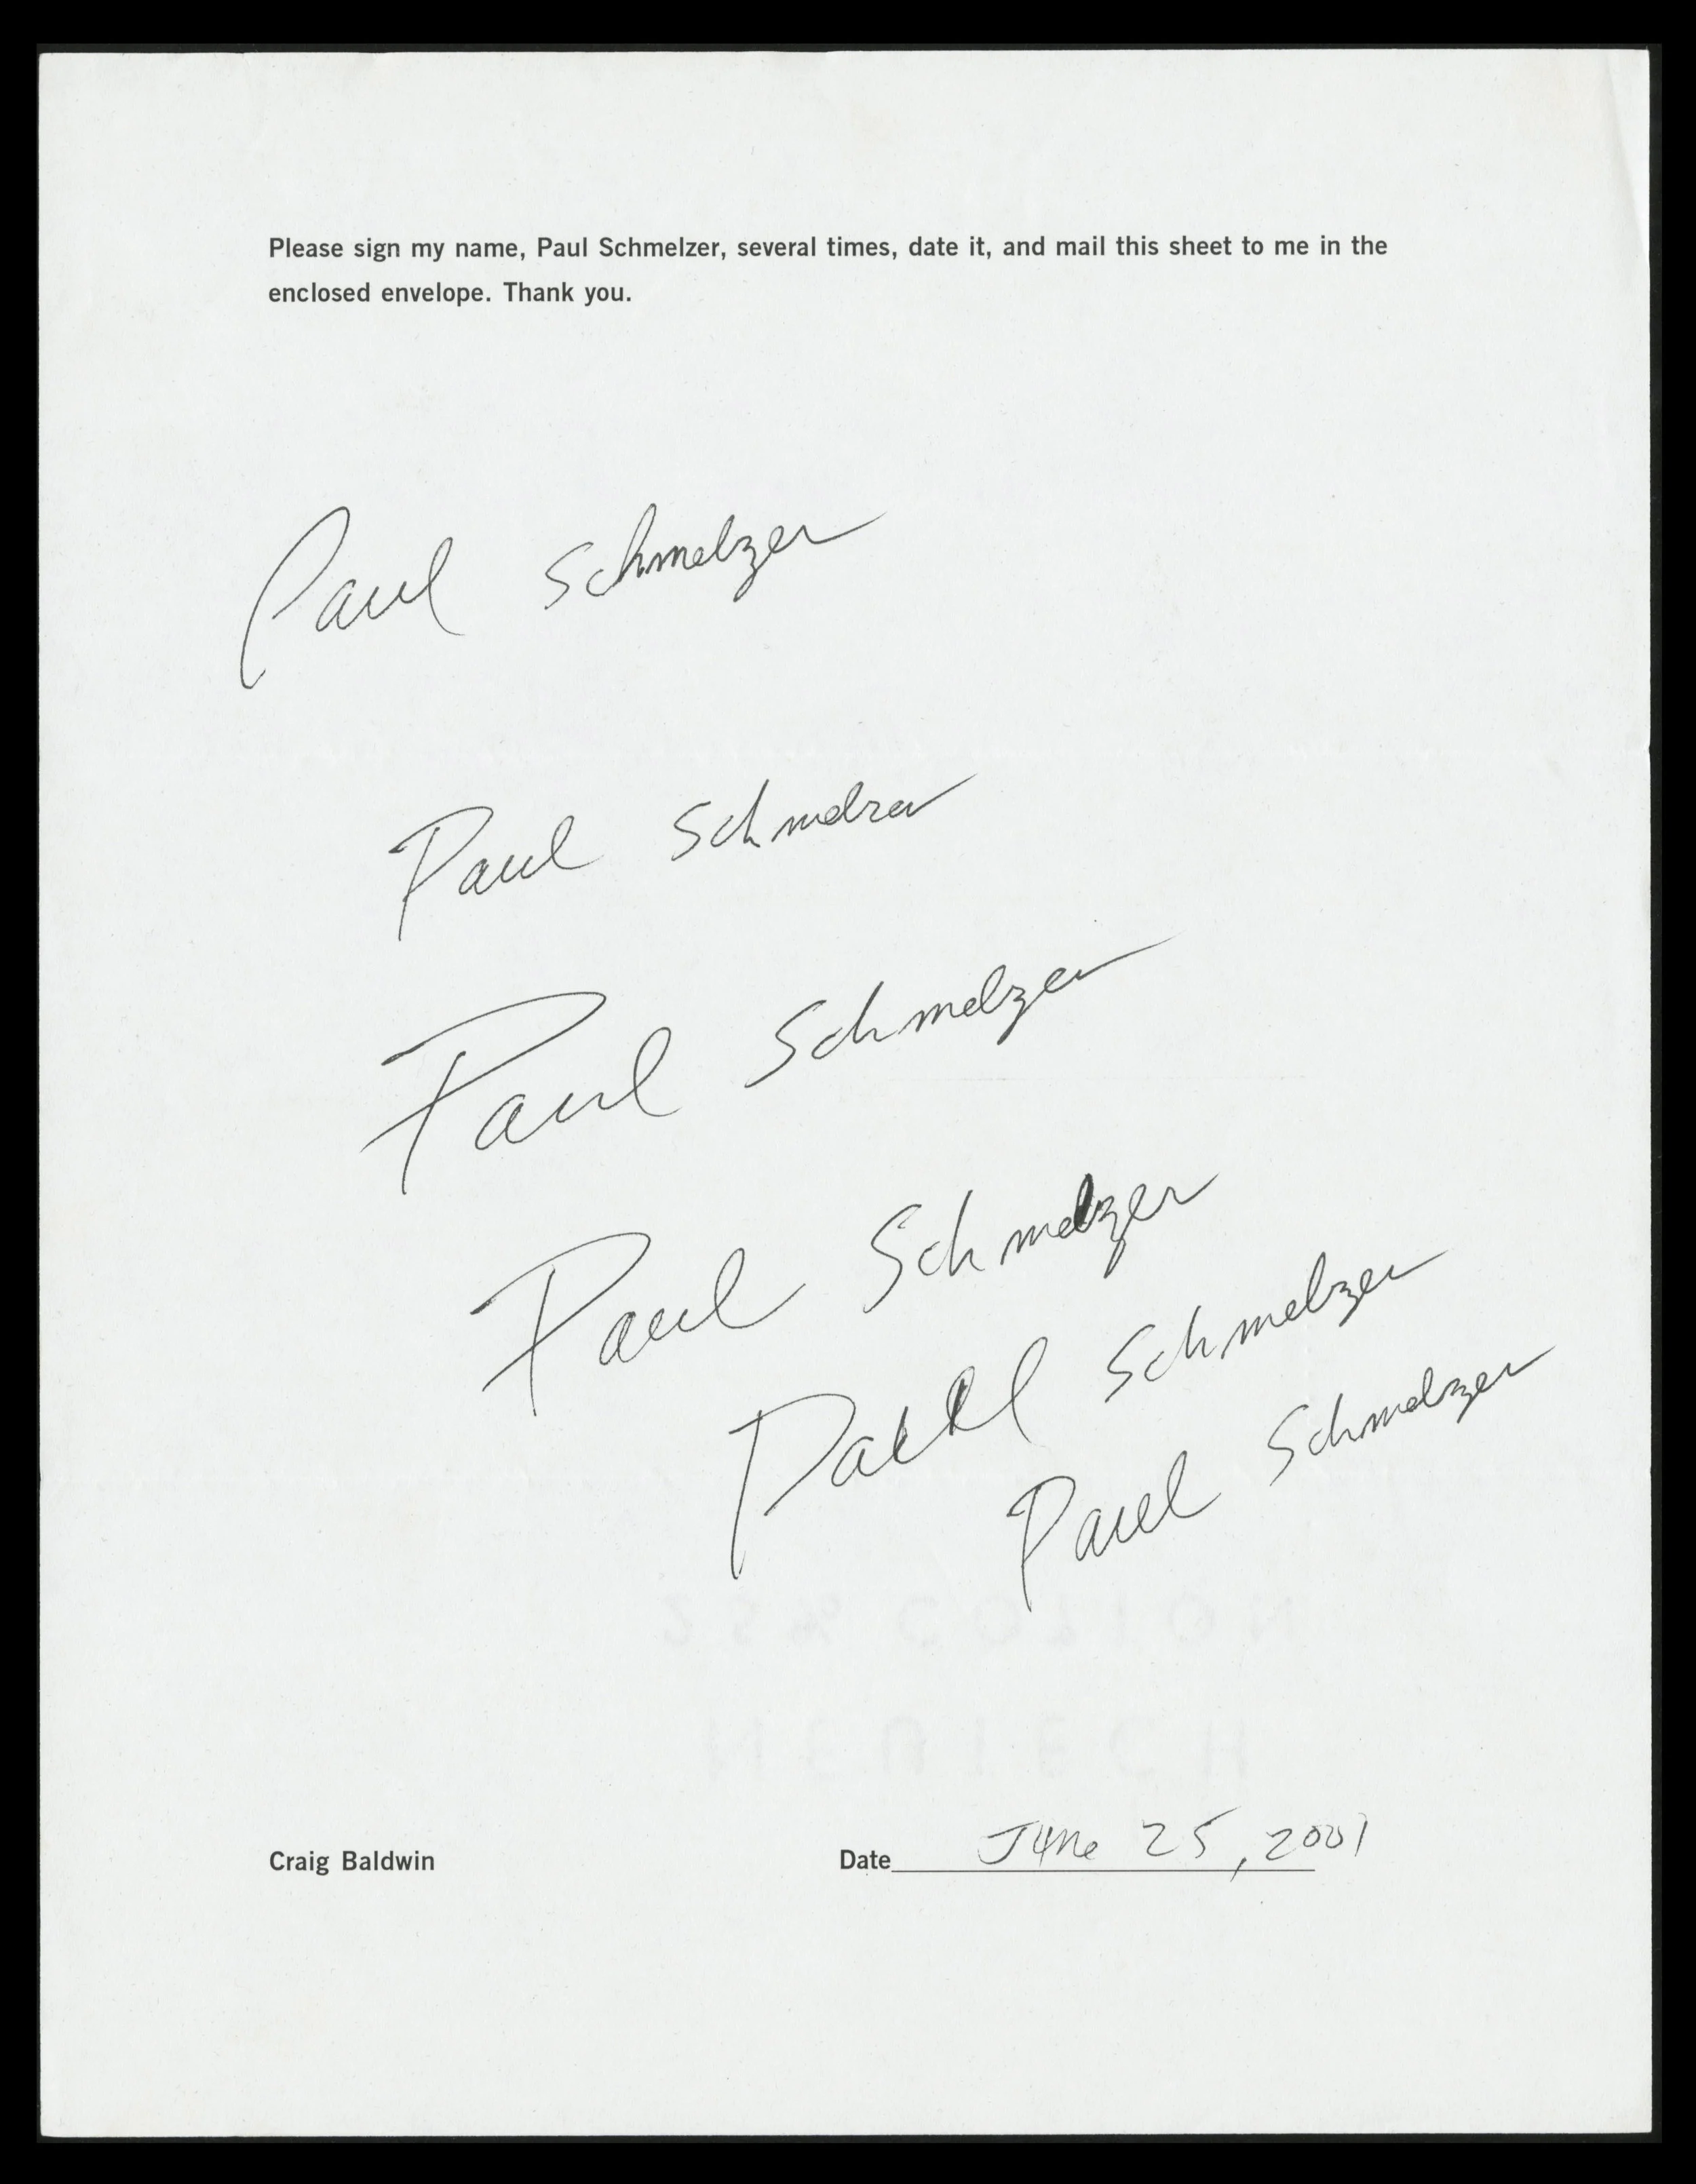 Please sign my name, Paul Schmelzer, several times, date it, and mail this sheet to me in the
enclosed envelope. Thank you.
Paul Schmelzer
Paul Schmelzer
Paul Schmelzer
Paul Schmelzer
Paul Schmelzer
Paul Schmelzer
Craig Baldwin Date June 25, 2001